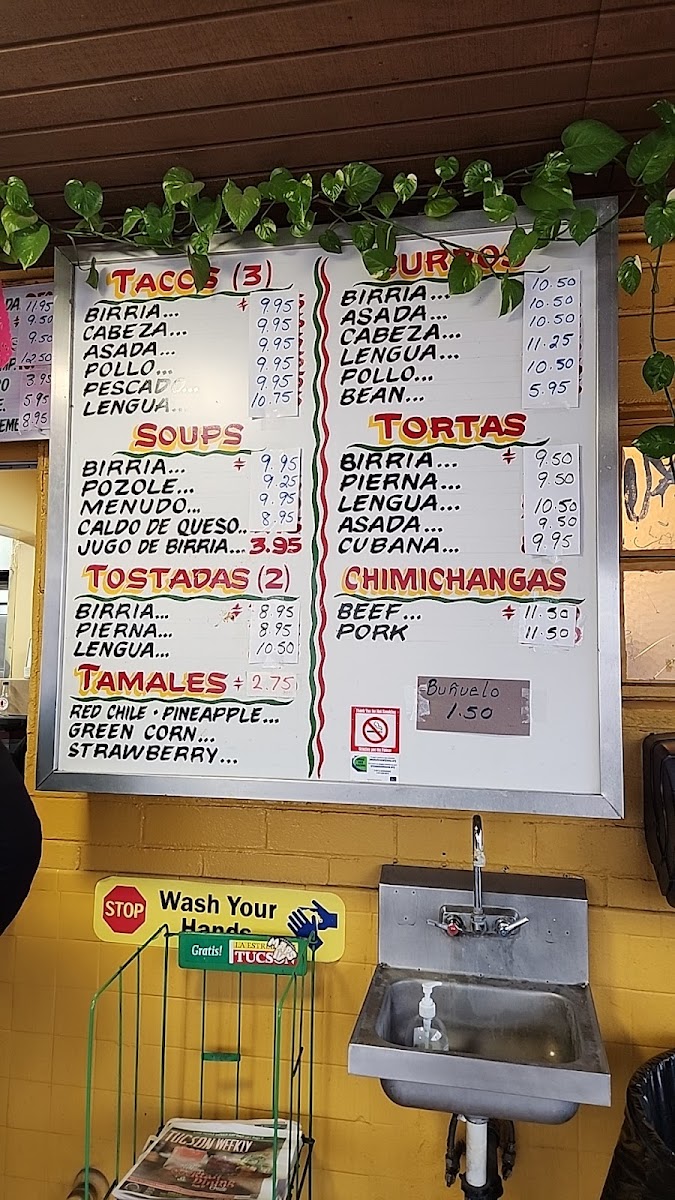 11.95
9.50
9.50
12.50
3.95
5.95
8.95
TACOS (3)
BIRRIA... 9.95
CABEZA... 9.95
ASADA... 9.95
POLLO... 9.95
PESCADO... 9.95
LENGUA... 10.75
SOUPS
BIRRIA... 9.95
POZOLE... 9.25
MENUDO... 9.95
CALDO DE QUESO.. 8.95
JUGO DE BIRRIA... 3.95
TOSTADAS (2)
BIRRIA... 8.95
PIERNA... 8.95
LENGUA... 10.50
TAMALES $ 2.75
RED CHILE • PINEAPPLE...
GREEN CORN...
STRAWBERRY...
BURROS
BIRRIA... 10.50
ASADA... 10.50
CABEZA... 10.50
LENGUA... 11.25
POLLO... 10.50
BEAN... 5.95
TORTAS
BIRRIA... $ 9.50
PIERNA... 9.50
LENGUA... 10.50
ASADA... 9.50
CUBANA... 9.95
CHIMICHANGAS
BEEF... $ 11.50
PORK 11.50
Buñuelo
1.50
Thank You for Not Smoking
STOP
Wash Your
Hands
Gratis!
LA ESTRELLA
TUCSON
TUCSON WEEKLY